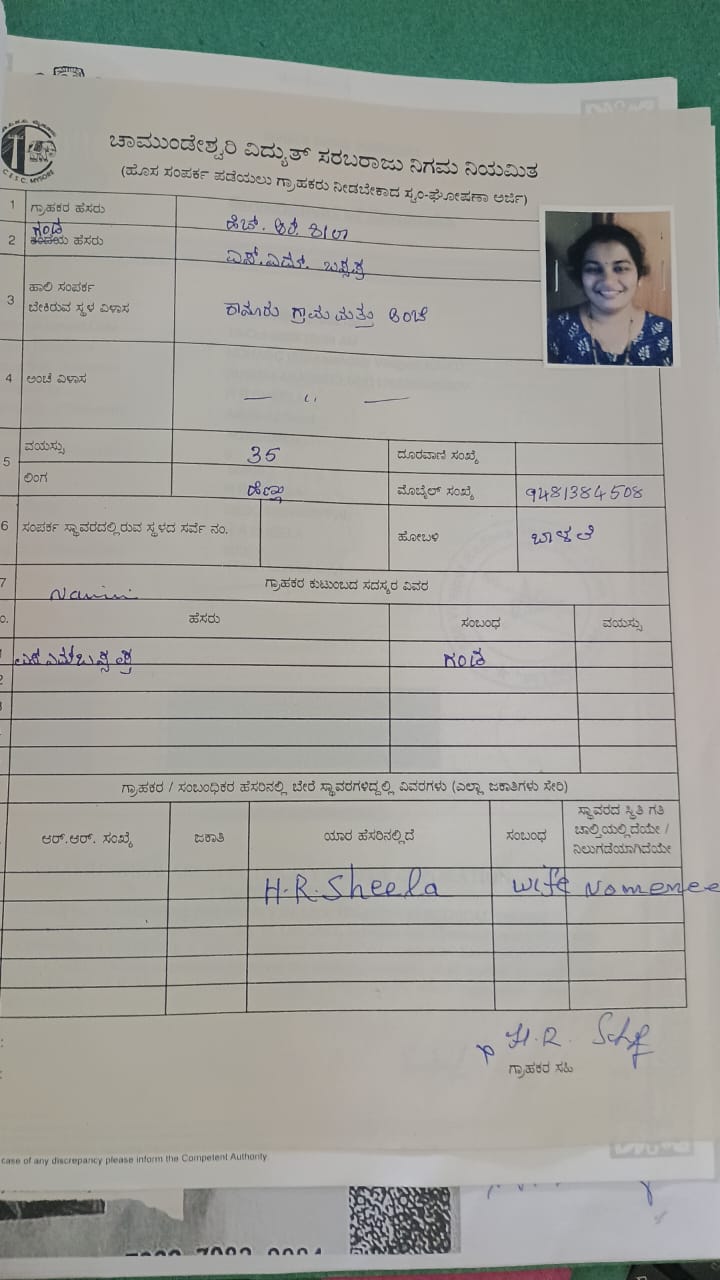 C.E.S.C. MYSORE
ಚಾಮುಂಡೇಶ್ವರಿ ವಿದ್ಯುತ್ ಸರಬರಾಜು ನಿಗಮ ನಿಯಮಿತ
(ಹೊಸ ಸಂಪರ್ಕ ಪಡೆಯಲು ಗ್ರಾಹಕರು ನೀಡಬೇಕಾದ ಸ್ವಂ-ಘೋಷಣಾ ಅರ್ಜಿ)
1 ಗ್ರಾಹಕರ ಹೆಸರು ಹೆಚ್. ಆರ್. ಶೀಲಾ
ಗಂಡ
2 ತಂದೆಯ ಹೆಸರು ಎಸ್.ಎಮ್.
3 ಹಾಲಿ ಸಂಪರ್ಕ
ಬೇಕಿರುವ ಸ್ಥಳ ವಿಳಾಸ ಗ್ರಾಮ ಮತ್ತು ಅಂಚೆ
4 ಅಂಚೆ ವಿಳಾಸ — " —
5 ವಯಸ್ಸು 35 ದೂರವಾಣಿ ಸಂಖ್ಯೆ
ಲಿಂಗ ಹೆಣ್ಣು ಮೊಬೈಲ್ ಸಂಖ್ಯೆ 9481384508
6 ಸಂಪರ್ಕ ಸ್ಥಾವರದಲ್ಲಿರುವ ಸ್ಥಳದ ಸರ್ವೆ ನಂ. ಹೋಬಳಿ
7 ಗ್ರಾಹಕರ ಕುಟುಂಬದ ಸದಸ್ಯರ ವಿವರ
ಹೆಸರು ಸಂಬಂಧ ವಯಸ್ಸು
ಗಂಡ
ಗ್ರಾಹಕರ / ಸಂಬಂಧಿಕರ ಹೆಸರಿನಲ್ಲಿ ಬೇರೆ ಸ್ಥಾವರಗಳಿದ್ದಲ್ಲಿ ವಿವರಗಳು (ಎಲ್ಲಾ ಜಕಾತಿಗಳು ಸೇರಿ)
ಆರ್.ಆರ್. ಸಂಖ್ಯೆ ಜಕಾತಿ ಯಾರ ಹೆಸರಿನಲ್ಲಿದೆ ಸಂಬಂಧ ಸ್ಥಾವರದ ಸ್ಥಿತಿ ಗತಿ
ಚಾಲ್ತಿಯಲ್ಲಿದೆಯೇ /
ನಿಲುಗಡೆಯಾಗಿದೆಯೇ
H.R.Sheela wife Nomenee
H.R.
ಗ್ರಾಹಕರ ಸಹಿ
case of any discrepancy please inform the Competent Authority